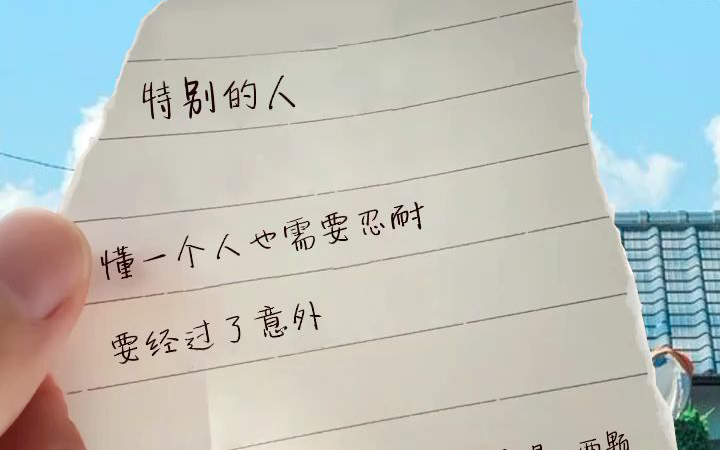 特别的人
懂一个人也需要忍耐
要经过了意外
两颗